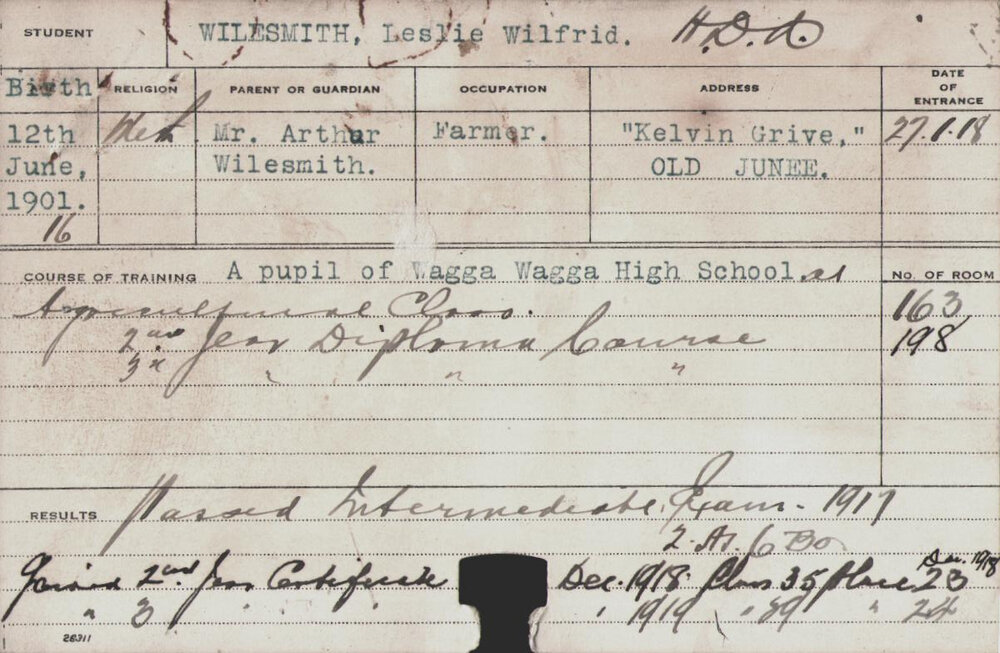 STUDENT WILESMITH, Leslie Wilfrid. H.D.A.
Birth RELIGION PARENT OR GUARDIAN OCCUPATION ADDRESS DATE OF ENTRANCE
12th Meth Mr. Arthur Farmer. "Kelvin Grive," 27.1.18
June, Wilesmith. OLD JUNEE.
1901.
16
COURSE OF TRAINING A pupil of Wagga Wagga High School. at No. OF ROOM
Agricultural Class. 163
2nd Year Diploma Course 198
3rd " " "
RESULTS Passed Intermediate Exam. 1917
2 As. 6 Bs
Dec. 1918
Gained 2nd Year Certificate Dec. 1918 Class 35 place 23
" 3 " " " 1919 " 39 " 24
26311